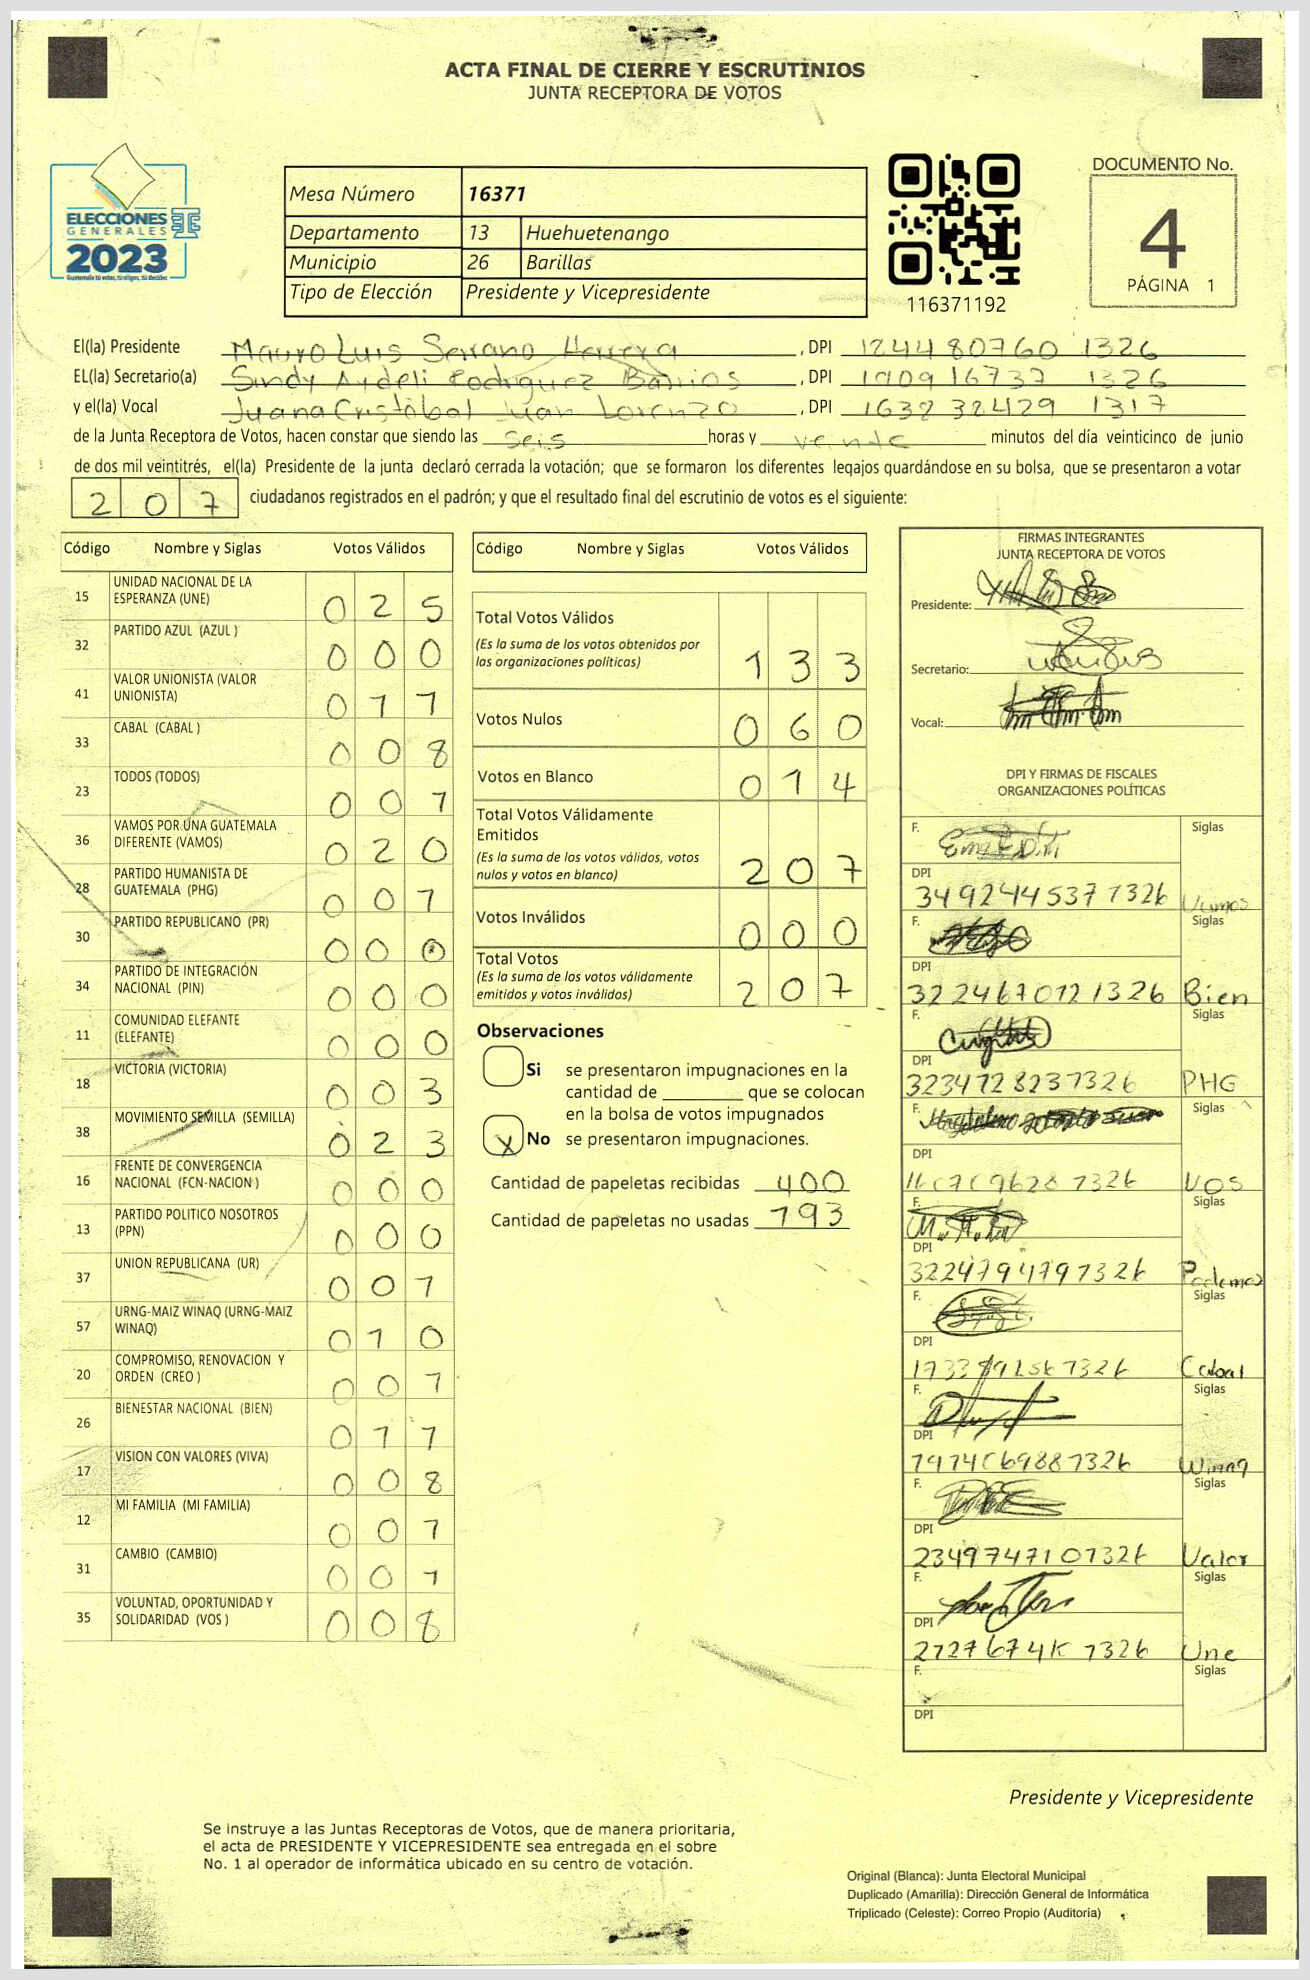 ACTA FINAL DE CIERRE Y ESCRUTINIOS
JUNTA RECEPTORA DE VOTOS
ELECCIONES
GENERALES
2023
Mesa Número 16371
Departamento 13 Huehuetenango
Municipio 26 Barillas
Tipo de Elección Presidente y Vicepresidente
116371192
DOCUMENTO No.
4
PÁGINA 1
El(la) Presidente Mauro Luis Serrano Herrera, DPI 124480760 1326
EL(la) Secretario(a) Sindy Aydeli Rodriguez Barrios, DPI 190916737 1326
y el(la) Vocal Juana Cristóbal Juan Lorenzo, DPI 163232429 1317
de la Junta Receptora de Votos, hacen constar que siendo las seis horas y veinte minutos del día veinticinco de junio
de dos mil veintitrés, el(la) Presidente de la junta declaró cerrada la votación; que se formaron los diferentes legajos guardándose en su bolsa, que se presentaron a votar
207 ciudadanos registrados en el padrón; y que el resultado final del escrutinio de votos es el siguiente:
Código Nombre y Siglas Votos Válidos
15 UNIDAD NACIONAL DE LA ESPERANZA (UNE) 025
32 PARTIDO AZUL (AZUL ) 000
41 VALOR UNIONISTA (VALOR UNIONISTA) 011
33 CABAL (CABAL ) 008
23 TODOS (TODOS) 001
36 VAMOS POR UNA GUATEMALA DIFERENTE (VAMOS) 020
28 PARTIDO HUMANISTA DE GUATEMALA (PHG) 001
30 PARTIDO REPUBLICANO (PR) 000
34 PARTIDO DE INTEGRACIÓN NACIONAL (PIN) 000
11 COMUNIDAD ELEFANTE (ELEFANTE) 000
18 VICTORIA (VICTORIA) 003
38 MOVIMIENTO SEMILLA (SEMILLA) 023
16 FRENTE DE CONVERGENCIA NACIONAL (FCN-NACION ) 000
13 PARTIDO POLITICO NOSOTROS (PPN) 000
37 UNION REPUBLICANA (UR) 001
57 URNG-MAIZ WINAQ (URNG-MAIZ WINAQ) 010
20 COMPROMISO, RENOVACION Y ORDEN (CREO ) 001
26 BIENESTAR NACIONAL (BIEN) 011
17 VISION CON VALORES (VIVA) 008
12 MI FAMILIA (MI FAMILIA) 001
31 CAMBIO (CAMBIO) 001
35 VOLUNTAD, OPORTUNIDAD Y SOLIDARIDAD (VOS ) 008
Código Nombre y Siglas Votos Válidos
Total Votos Válidos 133
(Es la suma de los votos obtenidos por
las organizaciones políticas)
Votos Nulos 060
Votos en Blanco 014
Total Votos Válidamente
Emitidos 207
(Es la suma de los votos válidos, votos
nulos y votos en blanco)
Votos Inválidos 000
Total Votos 207
(Es la suma de los votos válidamente
emitidos y votos inválidos)
Observaciones
Si se presentaron impugnaciones en la
cantidad de que se colocan
en la bolsa de votos impugnados
X No se presentaron impugnaciones.
Cantidad de papeletas recibidas 400
Cantidad de papeletas no usadas 193
FIRMAS INTEGRANTES
JUNTA RECEPTORA DE VOTOS
Presidente:
Secretario:
Vocal:
DPI Y FIRMAS DE FISCALES
ORGANIZACIONES POLÍTICAS
F. Siglas
DPI 349244537 1326 Vamos
F. Siglas
DPI 322467012 1326 Bien
F. Siglas
DPI 323412823 1326 PHG
F. Siglas
DPI 1326 VOS
F. Siglas
DPI 322419479 1326 Podemos
F. Siglas
DPI 1326 Cabal
F. Siglas
DPI 1326 Winaq
F. Siglas
DPI 234974710 1326 Valor
F. Siglas
DPI 1326 Une
F. Siglas
DPI
Presidente y Vicepresidente
Se instruye a las Juntas Receptoras de Votos, que de manera prioritaria,
el acta de PRESIDENTE Y VICEPRESIDENTE sea entregada en el sobre
No. 1 al operador de informática ubicado en su centro de votación.
Original (Blanca): Junta Electoral Municipal
Duplicado (Amarilla): Dirección General de Informática
Triplicado (Celeste): Correo Propio (Auditoría)